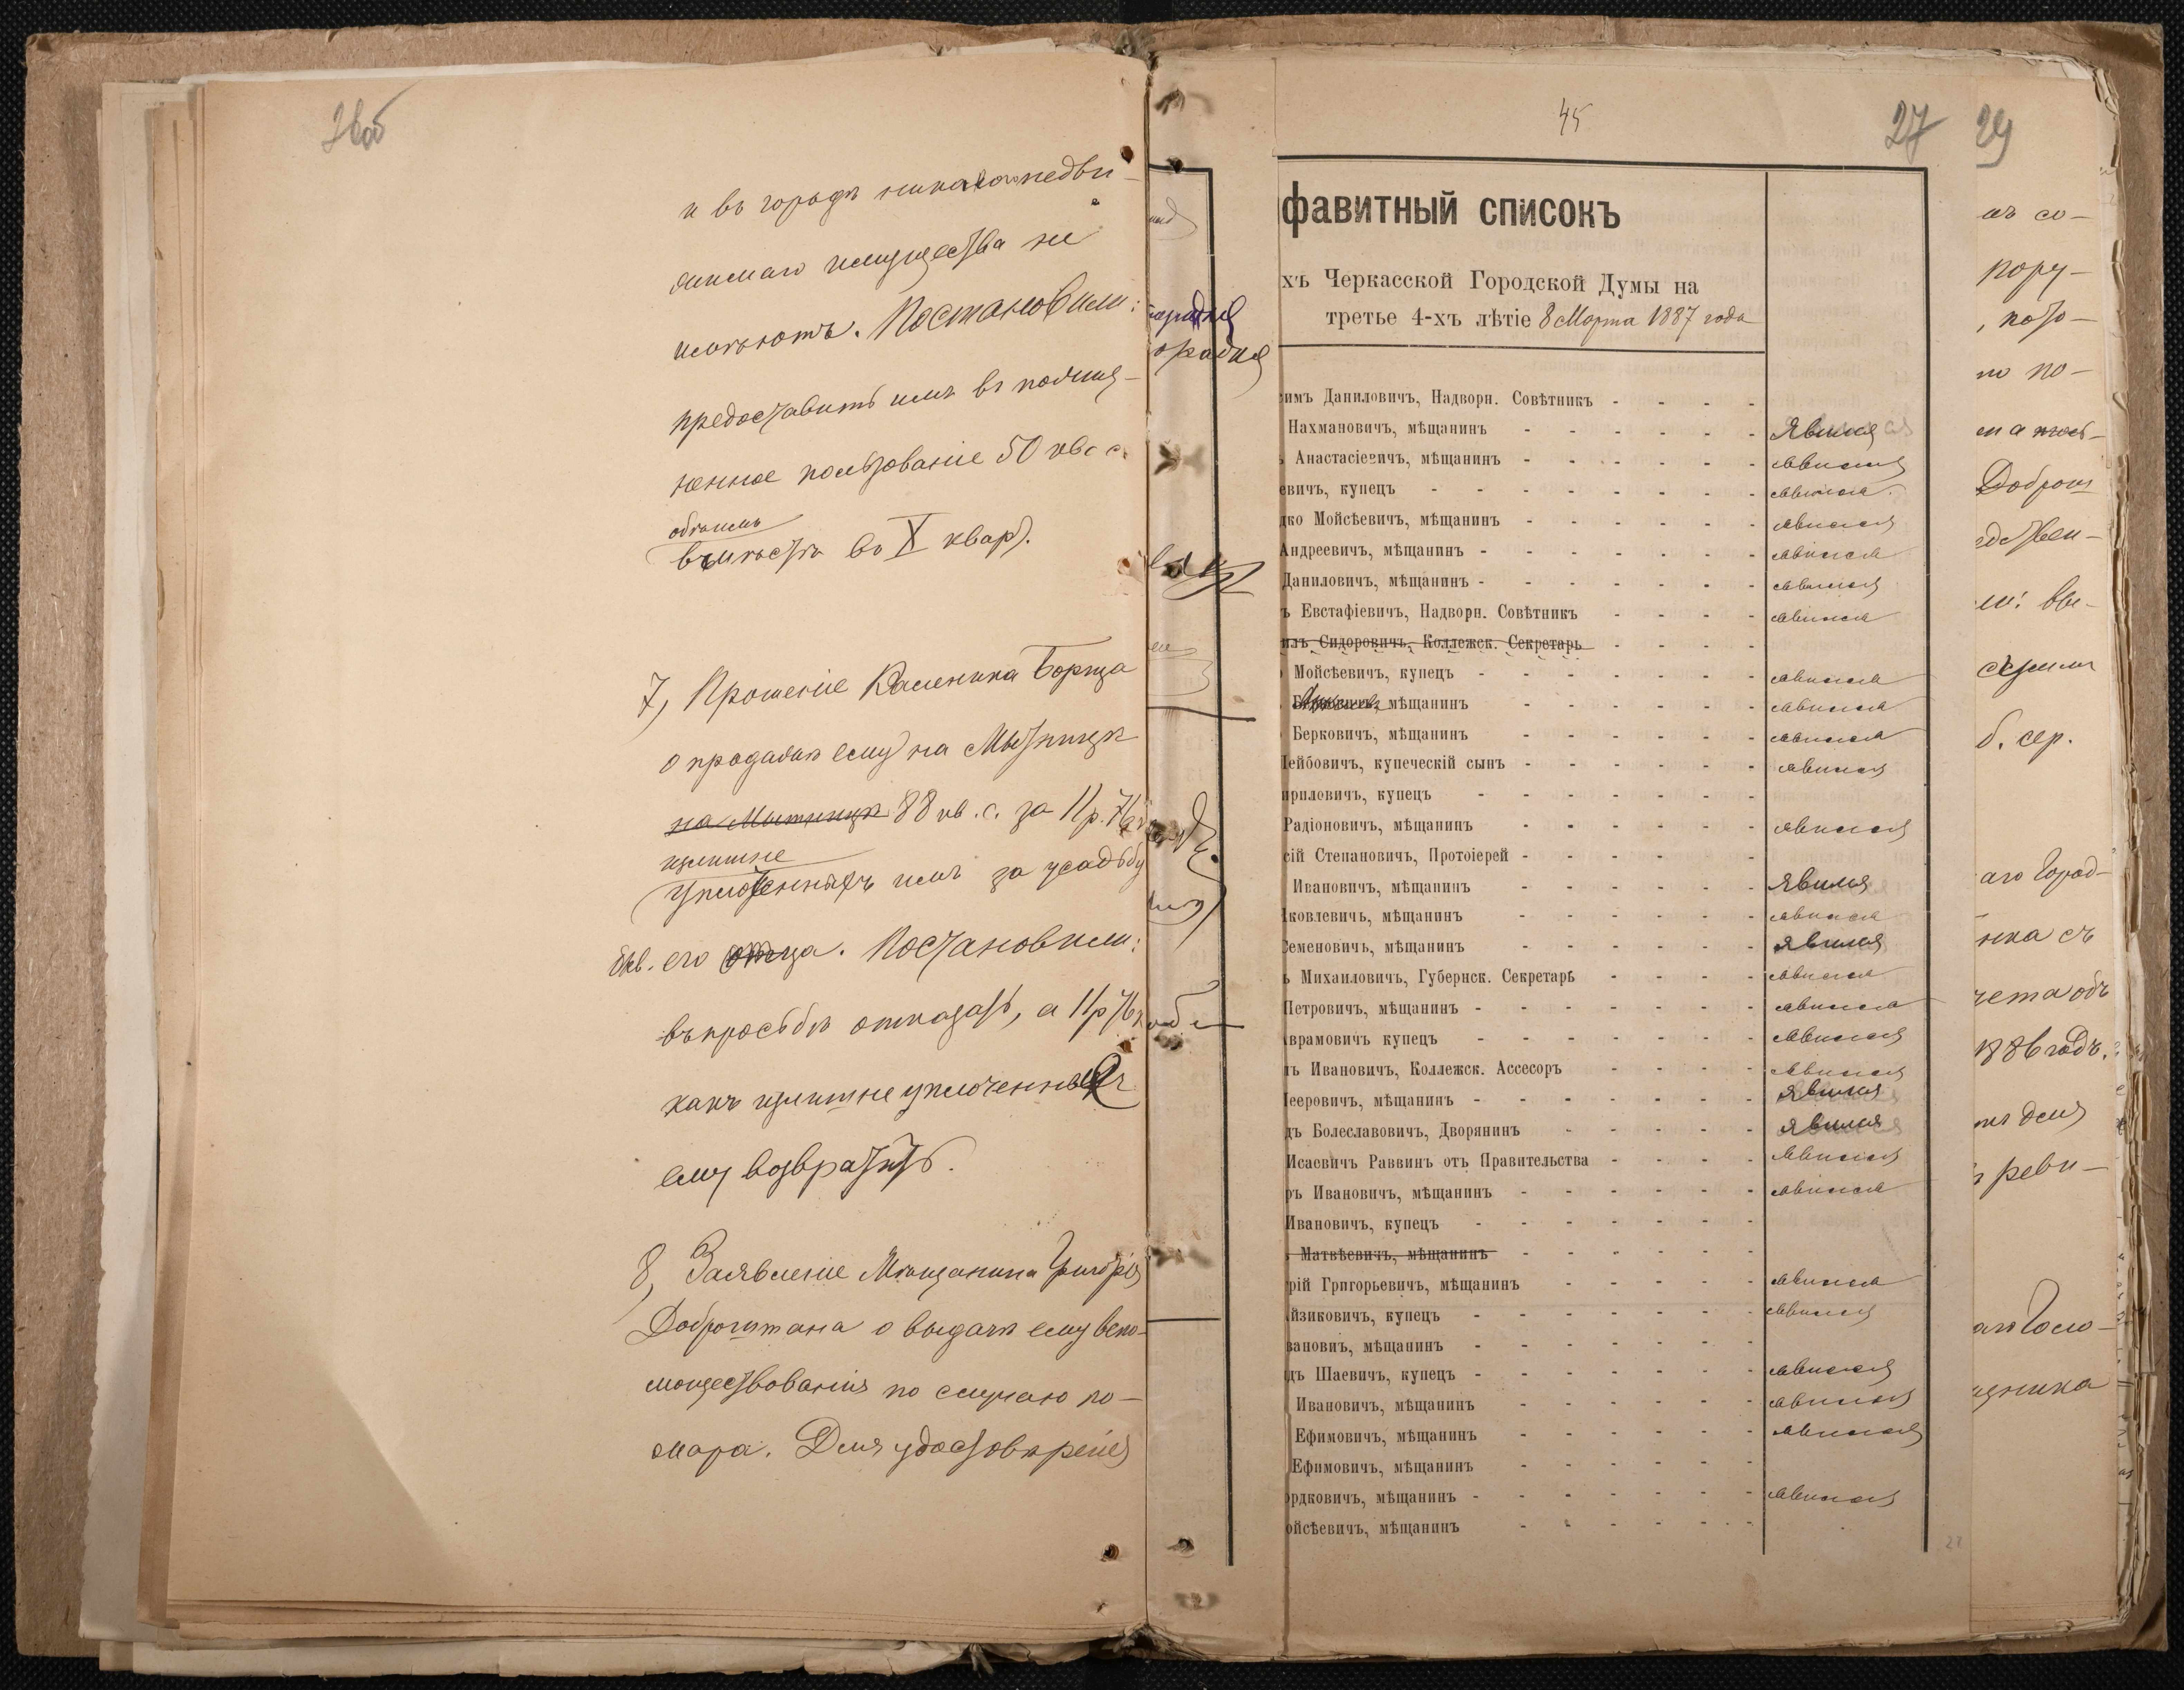 и въ городѣ никакого недви-
жимаго имущества не
имѣютъ. Постановили:
предоставить имъ въ пожиз-
ненное пользованіе 50 кв. с.
въ X кварт.
7, Прошеніе Каленика Борща
о продажѣ ему на Мытницѣ
на Мытницѣ 88 кв. с. за 11 р. 76 к
излишне
уплоченныхъ имъ за усадьбу
быв. его отца. Постановили:
въ просьбѣ отказать, а 11 р 76 к
какъ излишне уплоченные
ему возвратить.
8, Заявленіе Мѣщанина Григорія
Доброштана о выдачѣ ему вспо-
моществованія по случаю по-
жара. Для удостовѣренія
45
27
фавитный списокъ
хъ Черкасской Городской Думы на
третье 4-хъ лѣтіе 8 Марта 1887 года
имъ Даниловичъ, Надворн. Совѣтникъ
Нахмановичъ, мѣщанинъ явился
Анастасіевичъ, мѣщанинъ явился
евичъ, купецъ явился
дко Мойсѣевичъ, мѣщанинъ явился
Андреевичъ, мѣщанинъ явился
Даниловичъ, мѣщанинъ явился
ъ Евстафіевичъ, Надворн. Совѣтникъ явился
илъ Сидоровичъ, Коллежск. Секретарь
Мойсѣевичъ, купецъ явился
мѣщанинъ явился
Берковичъ, мѣщанинъ явился
Лейбовичъ, купеческій сынъ явился
ириловичъ, купецъ
Радіоновичъ, мѣщанинъ явился
сій Степановичъ, Протоіерей
Ивановичъ, мѣщанинъ явился
Яковлевичь, мѣщанинъ явился
Семеновичь, мѣщанинъ явился
ъ Михаиловичъ, Губернск. Секретарь явился
Петровичъ, мѣщанинъ явился
врамовичъ купецъ явился
ъ Ивановичъ, Коллежск. Ассесоръ явился
еровичъ, мѣщанинъ явился
дъ Болеславовичъ, Дворянинъ явился
Исаевичъ Раввинъ отъ Правительства явился
ръ Ивановичъ, мѣщанинъ явился
Ивановичъ, купецъ
Матвѣевичъ, мѣщанинъ
рій Григорьевичъ, мѣщанинъ явился
йзиковичъ, купецъ явился
вановиъ, мѣщанинъ
дъ Шаевичъ, купецъ явился
Ивановичъ, мѣщанинъ явился
Ефимовичъ, мѣщанинъ явился
Ефимовичъ, мѣщанинъ
рдковичъ, мѣщанинъ явился
ойсѣевичъ, мѣщанинъ
29
со-
пору-
по-
Доброш
вы-
б. сер.
аго Город-
ника съ
чета объ
1886 годъ.
для
реви-